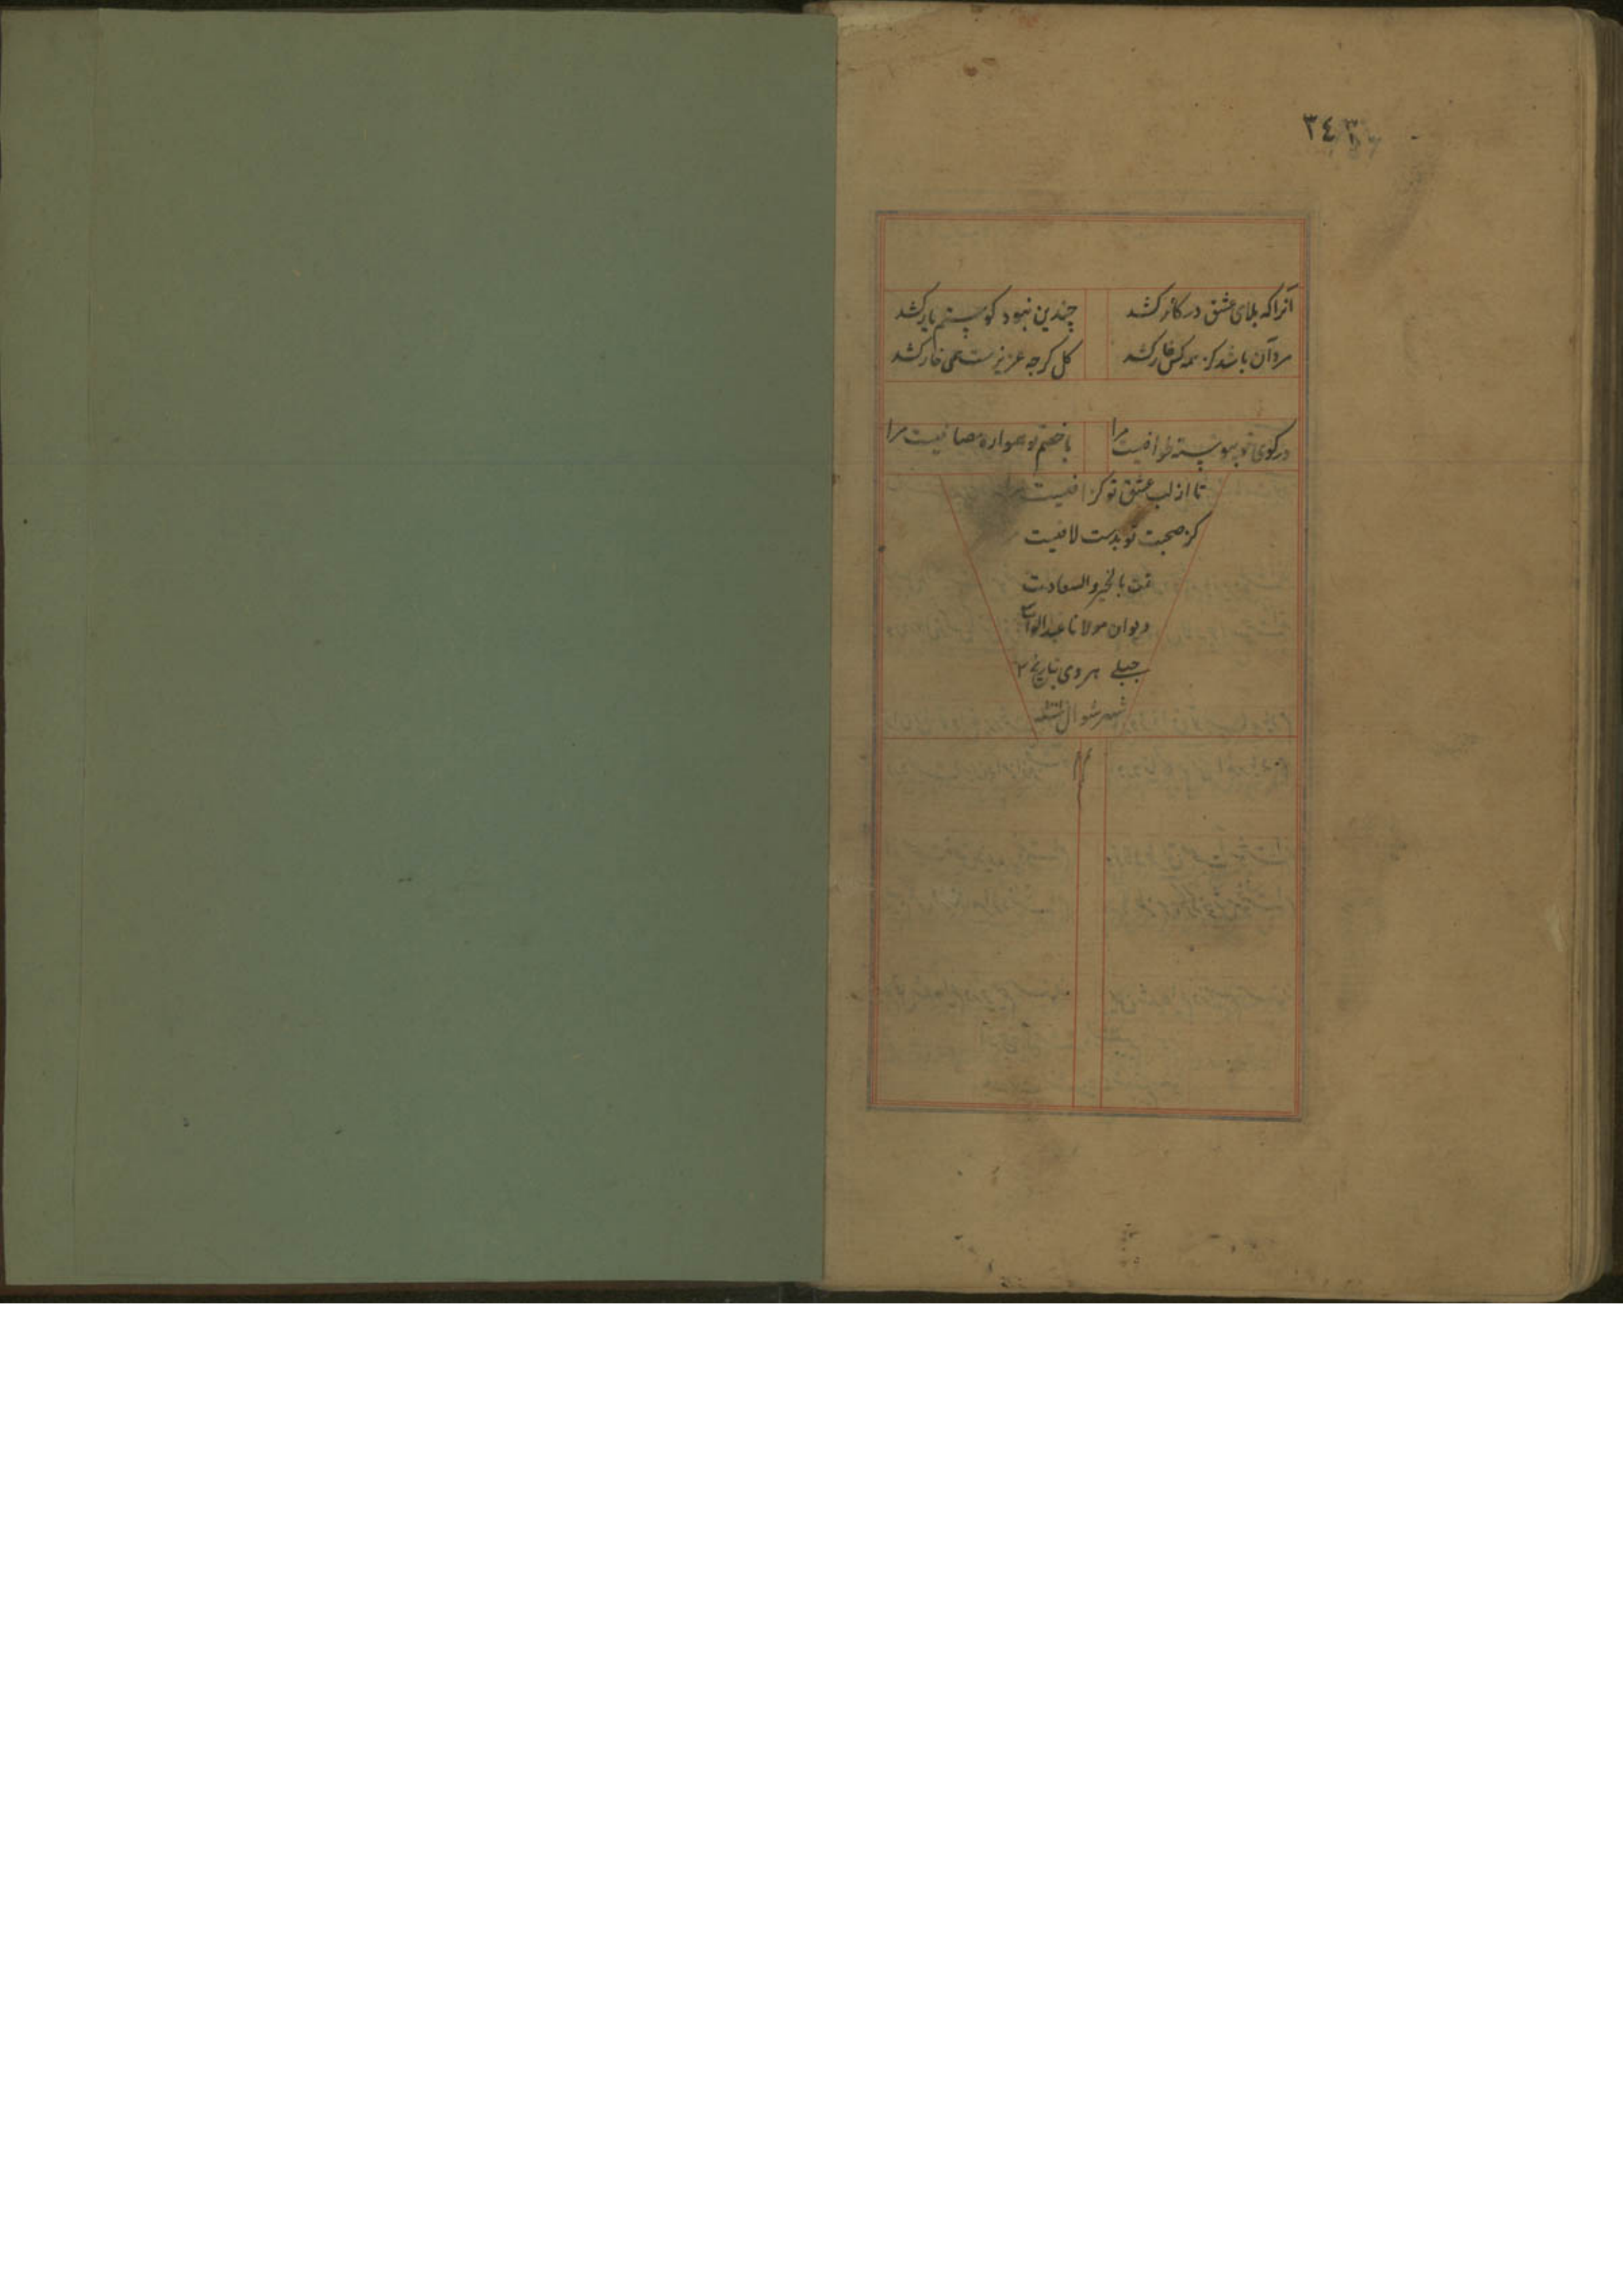 ٣٤
آنرا که بلای عشق در کار کشد چندین نبود کو ستم یار کشد
مرد آن باشد کز همه کس خار کشد کل کرجه عزیزست همی خار کشد
در کوی تو پیوسته طوافیست مرا با خصم تو همواره مصافیست مرا
تا از لب عشق تو کزافیست
کز صحبت تو بدست لافیست
تمت بالخیر والسعادت
دیوان مولانا عبدالواسع
جبلے هروی بتاریخ ٢
شهر شوال